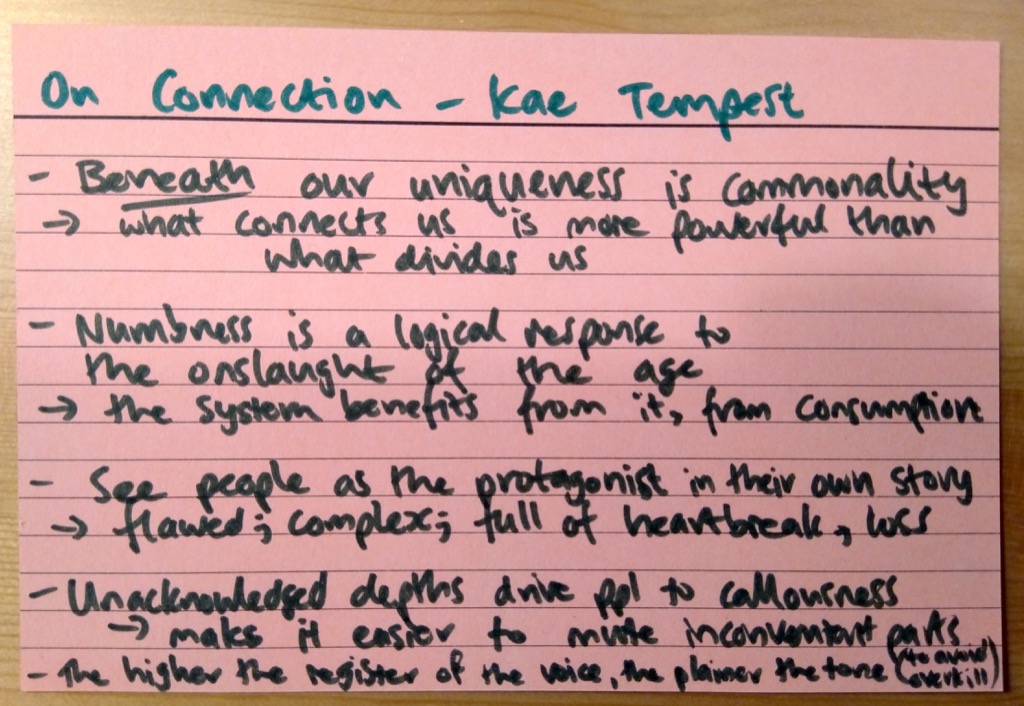 On Connection – Kae Tempest
- Beneath our uniqueness is commonality
→ what connects us is more powerful than
what divides us
- Numbness is a logical response to
the onslaught of the age
→ the system benefits from it, from consumption
- See people as the protagonist in their own story
→ flawed; complex; full of heartbreak, loss
- Unacknowledged depths drive ppl to callousness
→ makes it easier to mute inconvenient parts
- The higher the register of the voice, the plainer the tone (to avoid
overkill)